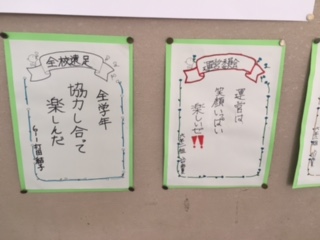 全校遠足
全学年
協力し合って
楽しんだ
運営は
笑顔いっぱい
楽しいぜ!!